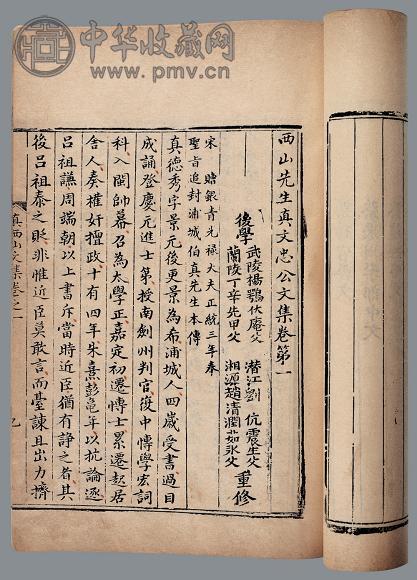 中华收藏网
www.pmv.cn
西山先生真文忠公文集卷第一
後學 武陵楊鶚伏庵父 潛江劉 伉震生父
蘭陵丁辛先甲父 湘源趙清潤茹永父 重修
宋 贈銀青光祿大夫正統三年奉
聖旨追封浦城伯真先生本傳
真德秀字景元後更景為希浦城人四歲受書過目
成誦登慶元進士第授南劍州判官復中博學宏詞
科入閩帥幕召為太學正嘉定初遷博士累遷起居
舍人奏權奸擅政十有四年朱熹彭龜年以抗論逐
呂祖謙周端朝以上書斥當時近臣猶有諍之者其
後呂祖泰之貶非惟近臣莫敢言而臺諫且出力擠
真西山文集卷之一